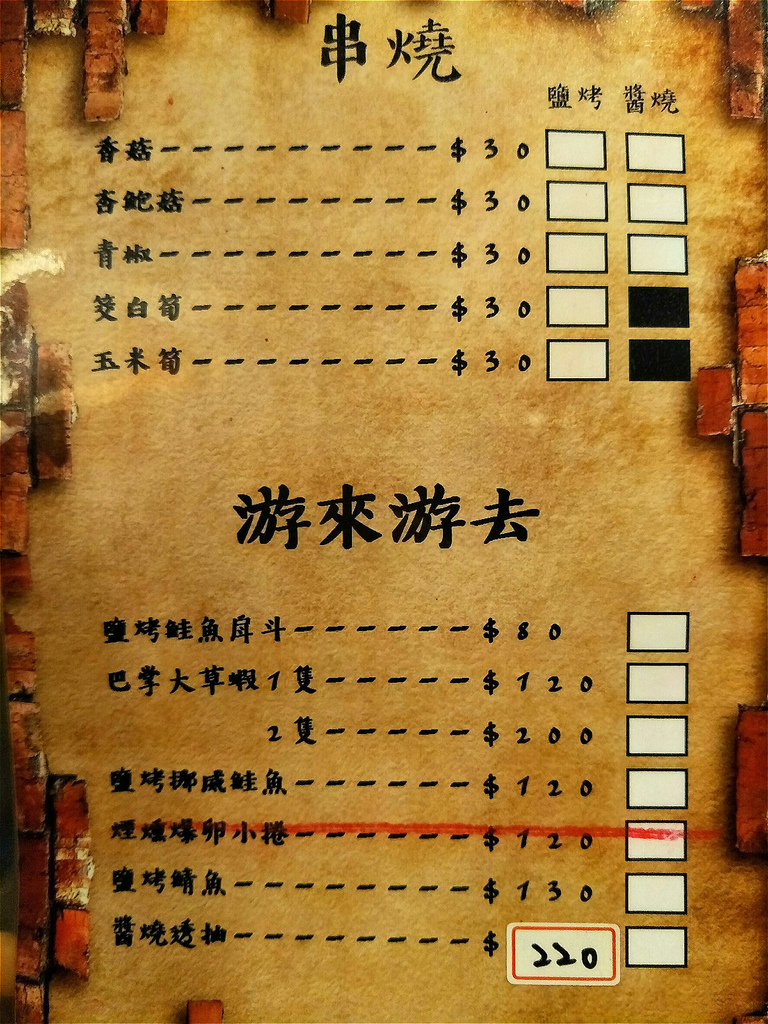 串燒
鹽烤 醬燒
香菇----------$30
杏鮑菇--------$30
青椒----------$30
筊白筍--------$30
玉米筍--------$30
游來游去
鹽烤鮭魚戽斗------$80
巴掌大草蝦1隻-----$120
2隻-----$200
鹽烤挪威鮭魚------$120
煙燻爆卵小捲------$120
鹽烤鯖魚--------$130
醬燒透抽--------$220